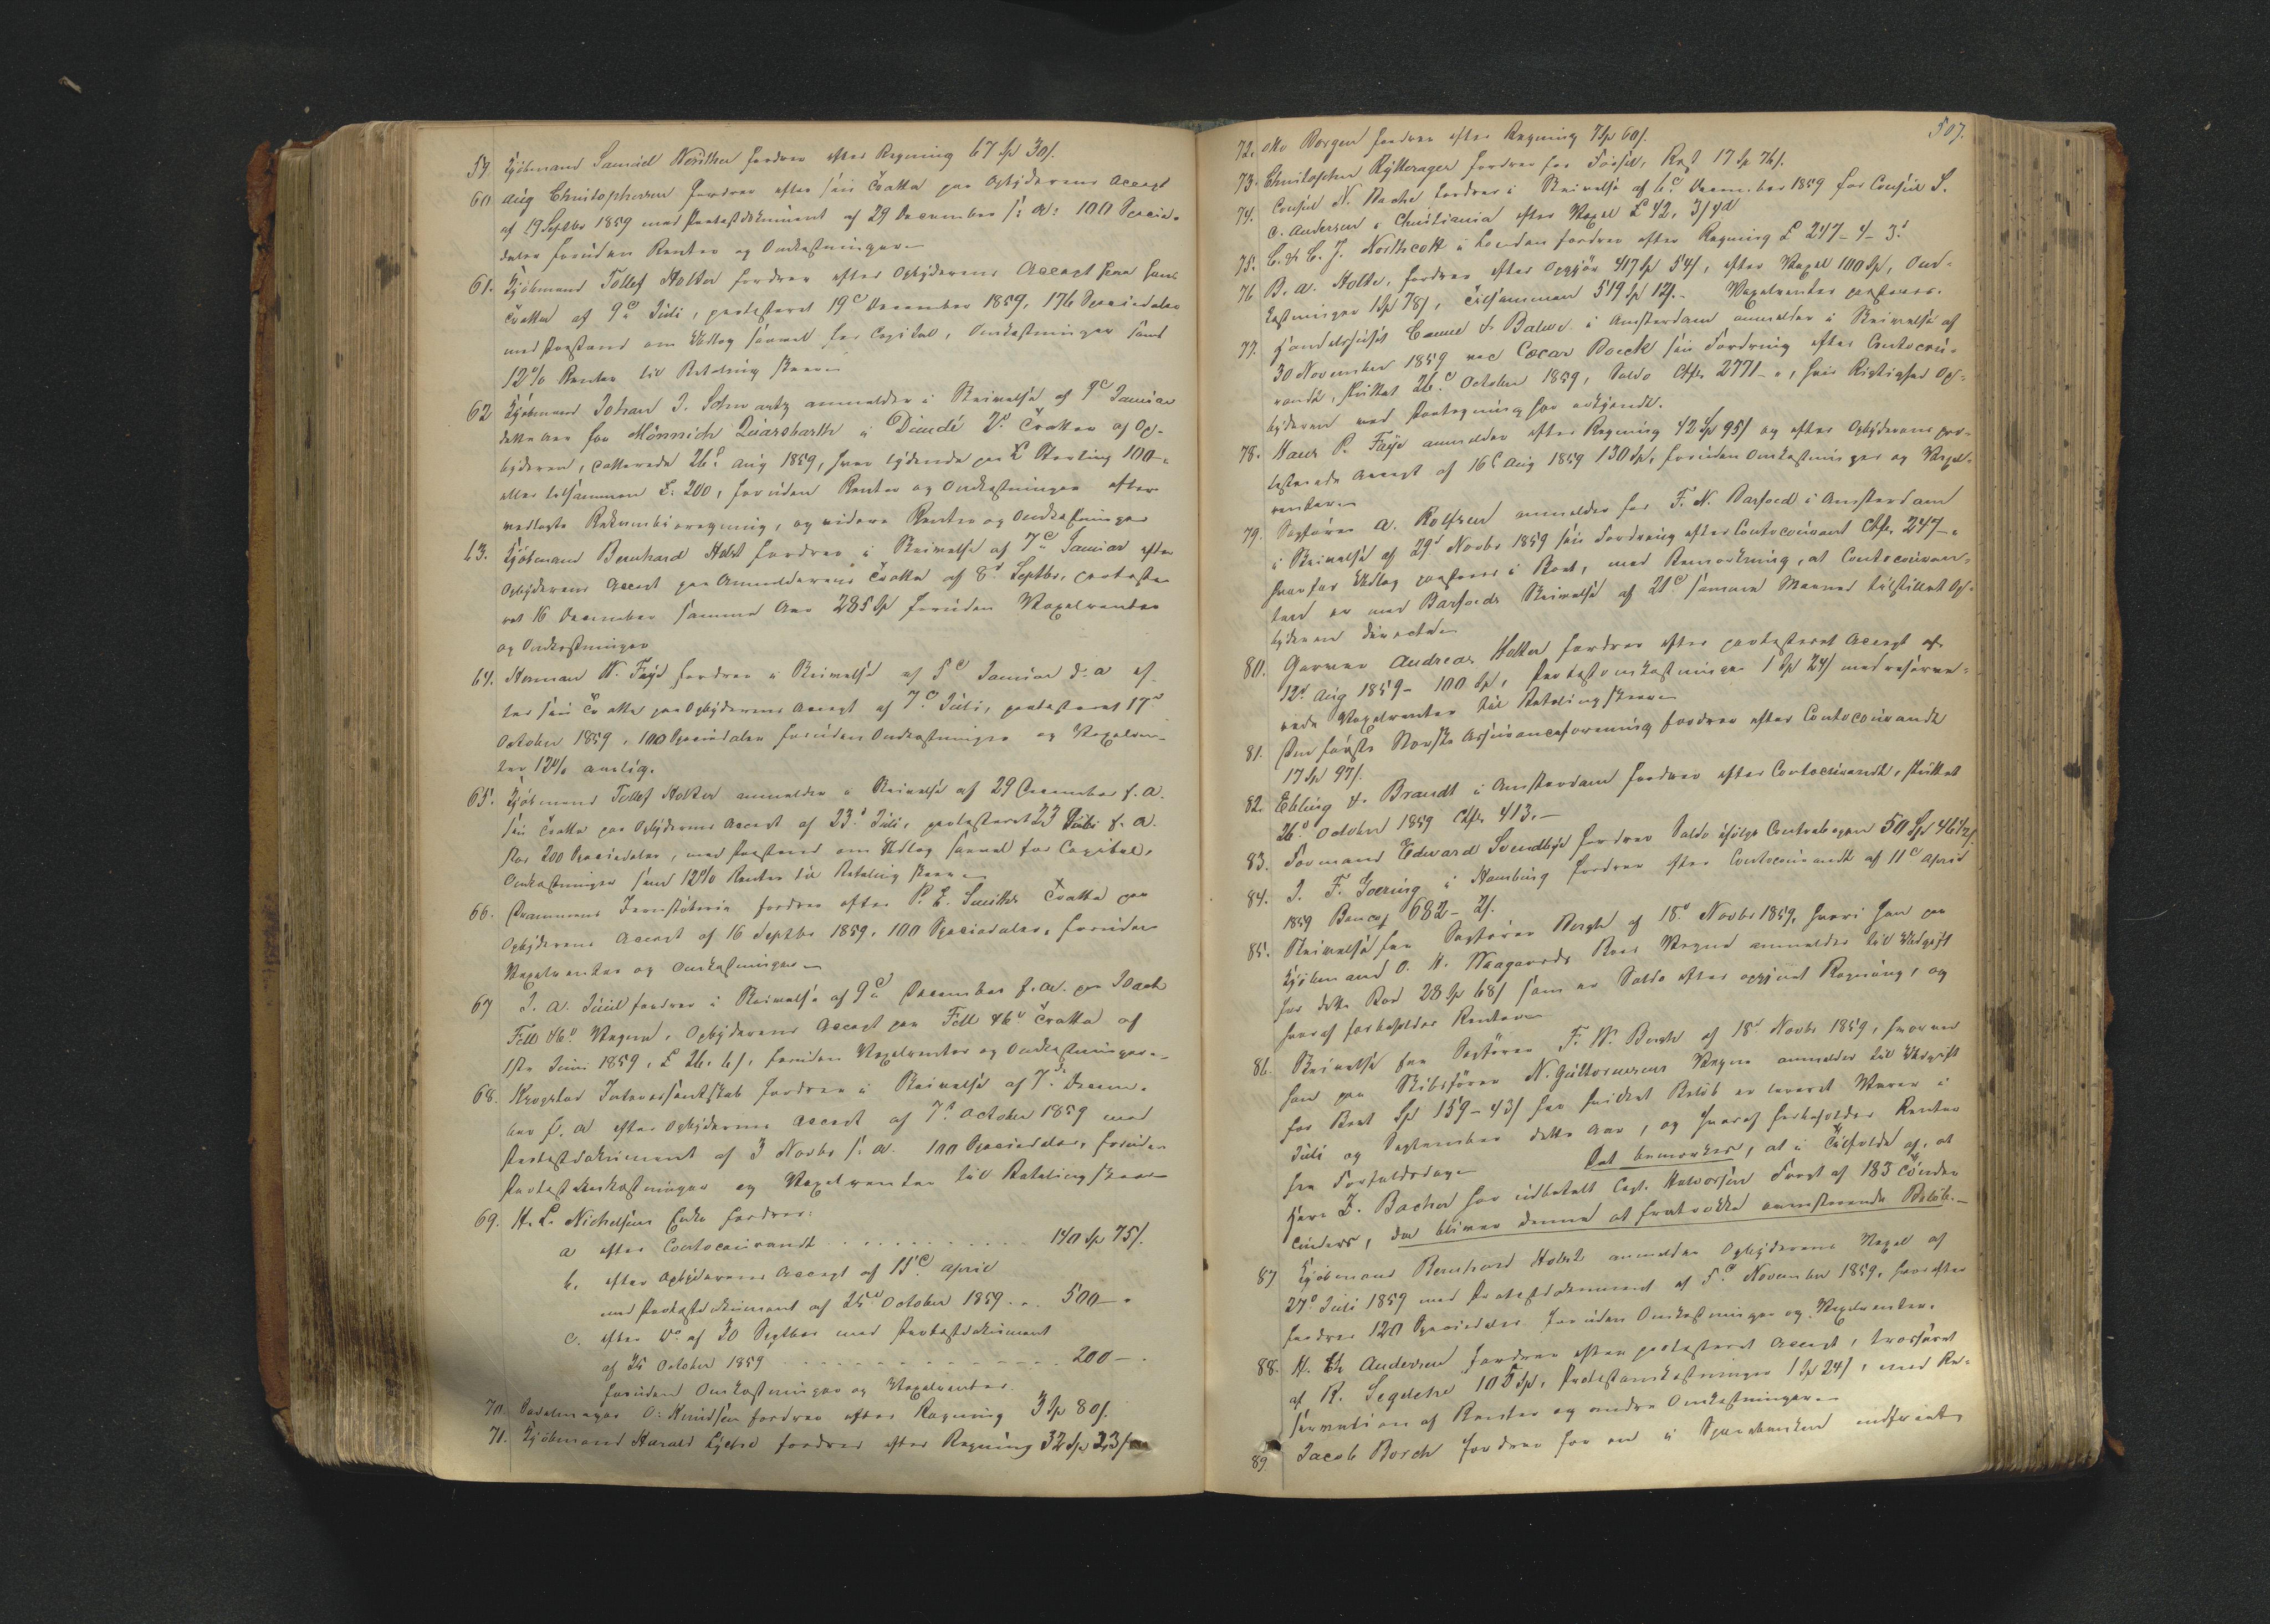 59. Kjöbmand Samuel fordrer efter Regning 67 Sp 30 s.
60 Aug Christophersen fordrer efter sin Tratta paa Opbyderens Accept
af 19 Septbr 1859 med Protestdokument af 29 December s: A: 100 Specie-
daler foruden Renter og Omkostninger
61. Kjöbmand Tollef Holter fordrer efter Opbyderens Accept paa hans
Tratta af 9de Juli, protesteret 19de December 1859, 176 Speciedaler
med Paastand om Udlæg saavel for Capital, Omkostninger samt
12% Renter til Betaling skeer
62 Kjöbmand Johan J. Schwartz anmelder i Skrivelse af 9de Januar
dette Aar for Mönnich Quarsbarth i Dundé 2de Tratter af Op-
byderen, daterede 26de Aug 1859, hver lydende paa £ Sterling 100 -
eller tilsammen £: 200, foruden Renter og Omkostninger efter
vedlagte Rekambioregning, og videre Renter og Omkostninger
63. Kjöbmand Bernhard Holst fordrer i Skrivelse af 7de Januar efter
Opbyderens Accept paa Anmelderens Tratta af 8de Septbr, proteste-
ret 16 December samme Aar 285 Sp foruden Vexelrenter
og Omkostninger
64. Herman W. Faye fordrer i Skrivelse af 5de Januar d: A ef-
ter sin Tratta paa Opbyderens Accept af 7de Juli, protesteret 17de
October 1859, 100 Speciedaler foruden Omkostninger og Vexelren-
ter 12% aarlig.
65. Kjöbmand Tollef Holter anmelder i Skrivelse af 29 December f. A.
sin Tratta paa Opbyderens Accept af 23de Juli, protesteret 23 f. A.
stor 200 Speciedaler, med Paastand om Udlæg saavel for Capital,
Omkostninger samt 12% Renter til Betaling skeer
66. Drammens Jernstöberie fordrer efter P. E. Smiths Tratta paa
Opbyderens Accept af 16 Septbr 1859, 100 Speciedaler, foruden
Vexelrenter og Omkostninger
67 J. A. Juul fordrer i Skrivelse af 9de December f. A. paa Isaach
Vegne, Opbyderens Accept paa Tratta af
1ste Juni 1859, £ 26. 6 s, foruden Vexelrenter og Omkostninger
68. Krogstad Interessentskab fordrer i Skrivelse af 7de Decem-
ber f. A efter Opbyderens Accept af 7de October 1859 med
Protestdokument af 3 Novbr s: A. 100 Speciedaler, foruden
Protestomkostninger og Vexelrenter til Betaling skeer
69. H. L. Nichelsens Enke fordrer:
a efter Contocourandt . . . . . 140 Sp 75 s.
b. efter Opbyderens Accept af 15de April
med Protestdokument af 25de October 1859 . . 500 - "
c. efter do af 30 Septbr med Protestdokument
af 25 October 1859 . . . . . 200 - "
foruden Omkostninger og Vexelrenter.
70. Sadelmager O: Knudsen fordrer efter Regning 3 Sp 80 s.
71. Kjöbmand Harald Lyche fordrer efter Regning 32 Sp 23 s
507.
72. Otto Borgen fordrer efter Regning 7 Sp 60 s.
73. Christopher Rytterager fordrer for 17 Sp 76 s.
74. Consul N. Bache fordrer i Skrivelse af 6te December 1859 for Consul S.
C. Andersen i Christiania efter Vexel £ 42. 3 s 4 d
75. C. & C. J. Northcott i London fordrer efter Regning £ 247 - 4 - 3 d
76 B. A. Holte, fordrer efter Opgjör 417 Sp 54 s, efter Vexel 100 Sp, Om-
kostninger 1 Sp 78 s, tilsammen 519 Sp 12 s. - Vexelrenter paastaaes.
77. Handelshuset & i Amsterdam anmelder i Skrivelse af
30 November 1859 ved Cæcar Boeck sin Fordring efter Contocou-
randt, sluttet 26de October 1859, Saldo 2771 - ", hvis Rigtighed Op-
byderen ved Paategning har erkjendt.
78. Hans P. Faye anmelder efter Regning 42 Sp 95 s og efter Opbyderens pro-
testerede Accept af 16de Aug 1859 130 Sp, foruden Omkostninger og Vexel-
renter
79. Sagförer A. Rolfsen anmelder for F. N. Barfoed i Amsterdam
i Skrivelse af 29de Novbr 1859 sin Fordring efter Contocourant 247 - "
hvorfor Udlæg paastaaes i Boet, med Bemærkning, at Contocouran-
ten er med Barfoeds Skrivelse af 21de samme Maaned tilstillet Op-
byderen directe
80. Garver Andreas Holter fordrer efter protesteret Accept af
12de Aug 1859 - 100 Sp, Protestomkostninger 1 Sp 24 s med reserve-
rede Vexelrenter til Betaling skeer
81. Den förste Norske Assuranceforening fordrer efter Contocourandt
17 Sp 97 s.
82. Ebling & Brandt i Amsterdam fordrer efter Contocourandt, sluttet
26de October 1859 413. -
83. Formand Edward Svendby fordrer Saldo ifölge Contrabogen 50 Sp 46 1/2 s
84. J. F. Goering i Hamburg fordrer efter Contocourandt af 11te April
1859 Banco 682 - 2 s.
85. Skrivelse fra Sagförer Borgh af 18de Novbr 1859, hvori han paa
Kjöbmand O. H. Naagaards Boes Vegne anmelder til Udgift
for dette Bod 28 Sp 68 s som er Saldo efter opgjort Regning, og
hvoraf forbeholdes Renter
86. Skrivelse fra Sagförer F. W. Borgh af 18de Novbr 1859, hvorved
han paa Skibsförer N. Guttormsens Vegne anmelder til Udgift
for Boet Sp 159 - 43 s for hvilket Belöb er leveret Varer i
Juli og September dette Aar, og hvoraf forbeholdes Renter
fra Forfaldsdage Det bemærkes, at i Tilfælde af, at
Herr J. Bache har udbetalt Capt. Halvorsen Fragt af 183 Tönder
Cinders, da bliver denne at fratrække ovenstaaende Belöb. -
87 Kjöbmand Bernhard Holst anmelder Opbyderens Vexel af
27de Juli 1859 med Protestdokument af 5te November 1859, hvorefter
fordres 120 Speciedaler foruden Omkostninger og Vexelrenter.
88. H. Andersen fordrer efter protesteret Accept, trasseret
af R. Segelcke 105 Sp, Protestomkostninger 1 Sp 24 s, med Re-
servation af Renter og andre Omkostninger
89 Jacob Borch fordrer for en i Sparebanken indfriet